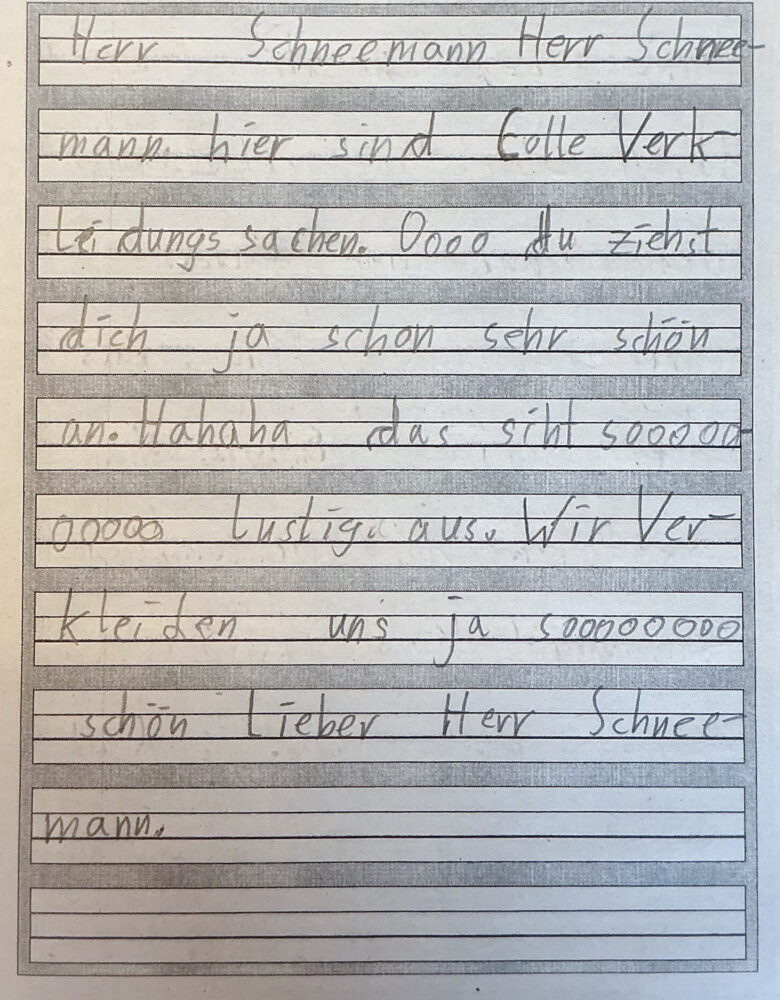 Herr Schneemann Herr Schnee-
mann. hier sind tolle Verk-
leidungssachen. Oooo du ziehst
dich ja schon sehr schön
an. Hahaha das siht sooooo-
ooooo lustig aus. Wir Ver-
kleiden uns ja sooooooooo
schön Lieber Herr Schnee-
mann.